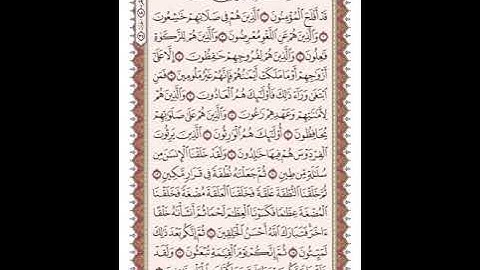 قَدْ أَفْلَحَ ٱلْمُؤْمِنُونَ ۝ ٱلَّذِينَ هُمْ فِى صَلَاتِهِمْ خَٰشِعُونَ
۝ وَٱلَّذِينَ هُمْ عَنِ ٱللَّغْوِ مُعْرِضُونَ ۝ وَٱلَّذِينَ هُمْ لِلزَّكَوٰةِ
فَٰعِلُونَ ۝ وَٱلَّذِينَ هُمْ لِفُرُوجِهِمْ حَٰفِظُونَ ۝ إِلَّا عَلَىٰٓ
أَزْوَٰجِهِمْ أَوْ مَا مَلَكَتْ أَيْمَٰنُهُمْ فَإِنَّهُمْ غَيْرُ مَلُومِينَ ۝ فَمَنِ
ٱبْتَغَىٰ وَرَآءَ ذَٰلِكَ فَأُو۟لَٰٓئِكَ هُمُ ٱلْعَادُونَ ۝ وَٱلَّذِينَ هُمْ
لِأَمَٰنَٰتِهِمْ وَعَهْدِهِمْ رَٰعُونَ ۝ وَٱلَّذِينَ هُمْ عَلَىٰ صَلَوَٰتِهِمْ
يُحَافِظُونَ ۝ أُو۟لَٰٓئِكَ هُمُ ٱلْوَٰرِثُونَ ۝ ٱلَّذِينَ يَرِثُونَ
ٱلْفِرْدَوْسَ هُمْ فِيهَا خَٰلِدُونَ ۝ وَلَقَدْ خَلَقْنَا ٱلْإِنسَٰنَ مِن
سُلَٰلَةٍ مِّن طِينٍ ۝ ثُمَّ جَعَلْنَٰهُ نُطْفَةً فِى قَرَارٍ مَّكِينٍ ۝
ثُمَّ خَلَقْنَا ٱلنُّطْفَةَ عَلَقَةً فَخَلَقْنَا ٱلْعَلَقَةَ مُضْغَةً فَخَلَقْنَا
ٱلْمُضْغَةَ عِظَٰمًا فَكَسَوْنَا ٱلْعِظَٰمَ لَحْمًا ثُمَّ أَنشَأْنَٰهُ خَلْقًا
ءَاخَرَ فَتَبَارَكَ ٱللَّهُ أَحْسَنُ ٱلْخَٰلِقِينَ ۝ ثُمَّ إِنَّكُم بَعْدَ ذَٰلِكَ
لَمَيِّتُونَ ۝ ثُمَّ إِنَّكُمْ يَوْمَ ٱلْقِيَٰمَةِ تُبْعَثُونَ ۝ وَلَقَدْ